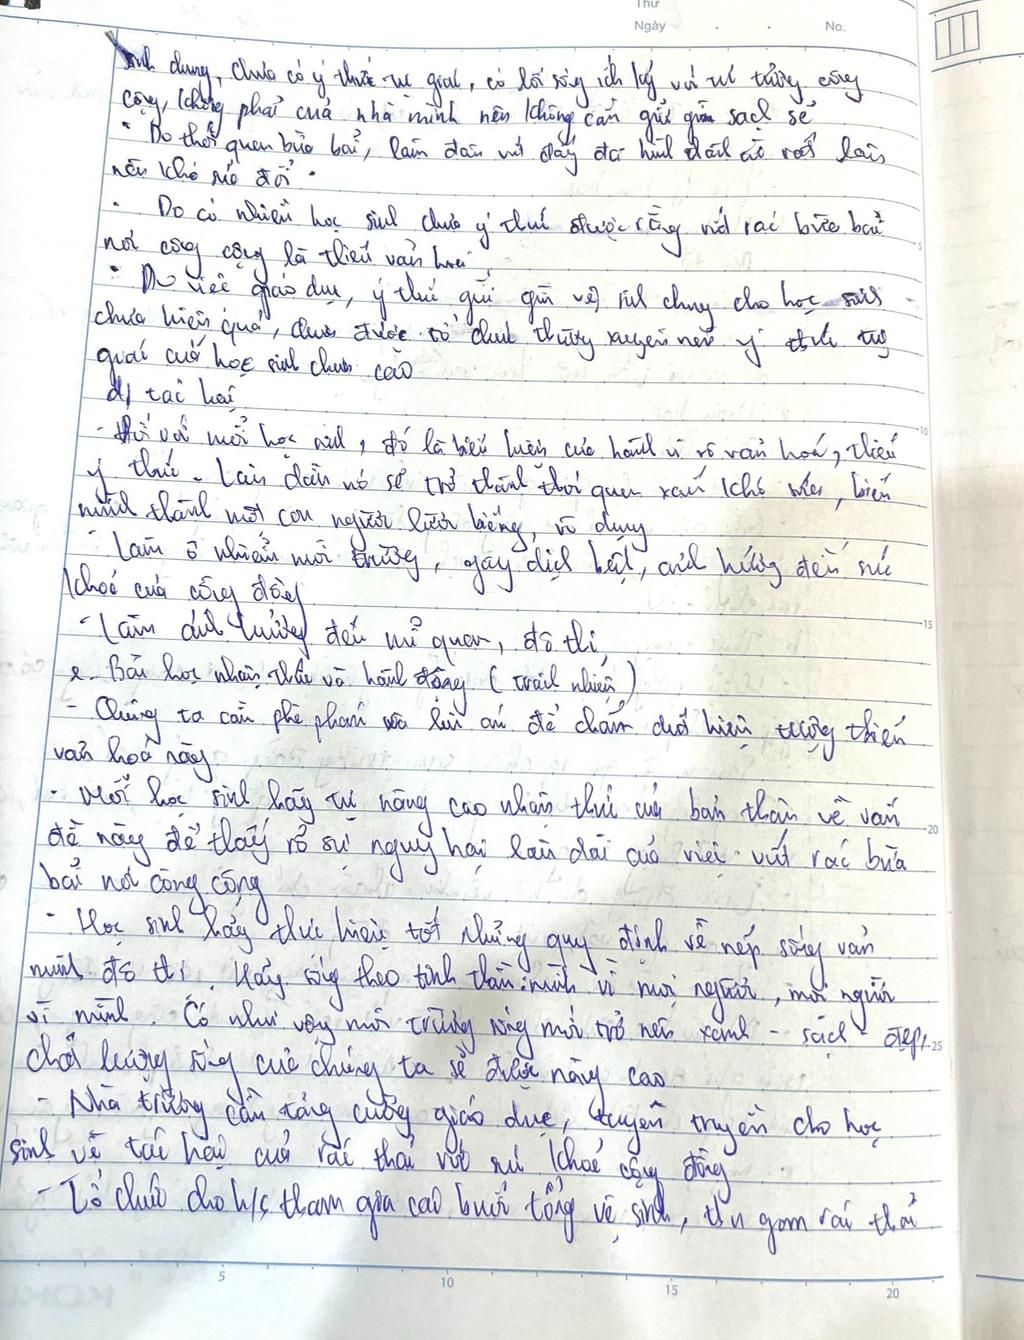 Thứ
Ngày . . No.
sinh chung, chưa có ý thức tự giác, có lối sống ích kỷ với tư tưởng công
cộng, không phải của nhà mình nên không cần giữ gìn sạch sẽ
- Do thói quen bừa bãi, lâu dần nó đã hình thành rất lâu
nên khó sửa đổi.
- Do có nhiều học sinh chưa ý thức được rằng vứt rác bừa bãi
nơi công cộng là thiếu văn hoá
- Do việc giáo dục, ý thức giữ gìn vệ sinh chung cho học sinh
chưa hiệu quả, chưa được tổ chức thường xuyên nên ý thức tự
giác của học sinh chưa cao
d) tác hại
- Đối với mỗi học sinh, đó là biểu hiện của hành vi vô văn hoá, thiếu
ý thức. Lâu dần nó sẽ trở thành thói quen xấu khó sửa, biến
mình thành một con người lười biếng, vô dụng
- Làm ô nhiễm môi trường, gây dịch bệnh, ảnh hưởng đến sức
khoẻ của cộng đồng
- Làm ảnh hưởng đến mĩ quan, đô thị,
e. Bài học nhận thức và hành động (trách nhiệm)
- Chúng ta cần phê phán và lên án để chấm dứt hiện tượng thiếu
văn hoá này
- Mỗi học sinh hãy tự nâng cao nhận thức của bản thân về vấn
đề này để thấy rõ sự nguy hại lâu dài của việc vứt rác bừa
bãi nơi công cộng
- Học sinh hãy thực hiện tốt những quy định về nếp sống văn
minh đô thị. Hãy sống theo tinh thần: mình vì mọi người, mọi người
vì mình. Có như vậy môi trường sống mới trở nên xanh - sạch - đẹp,
chất lượng sống của chúng ta sẽ được nâng cao
- Nhà trường cần tăng cường giáo dục, tuyên truyền cho học
sinh về tác hại của rác thải với sức khoẻ cộng đồng
- Tổ chức cho h/s tham gia các buổi tổng vệ sinh, thu gom rác thải
5 10 15 20